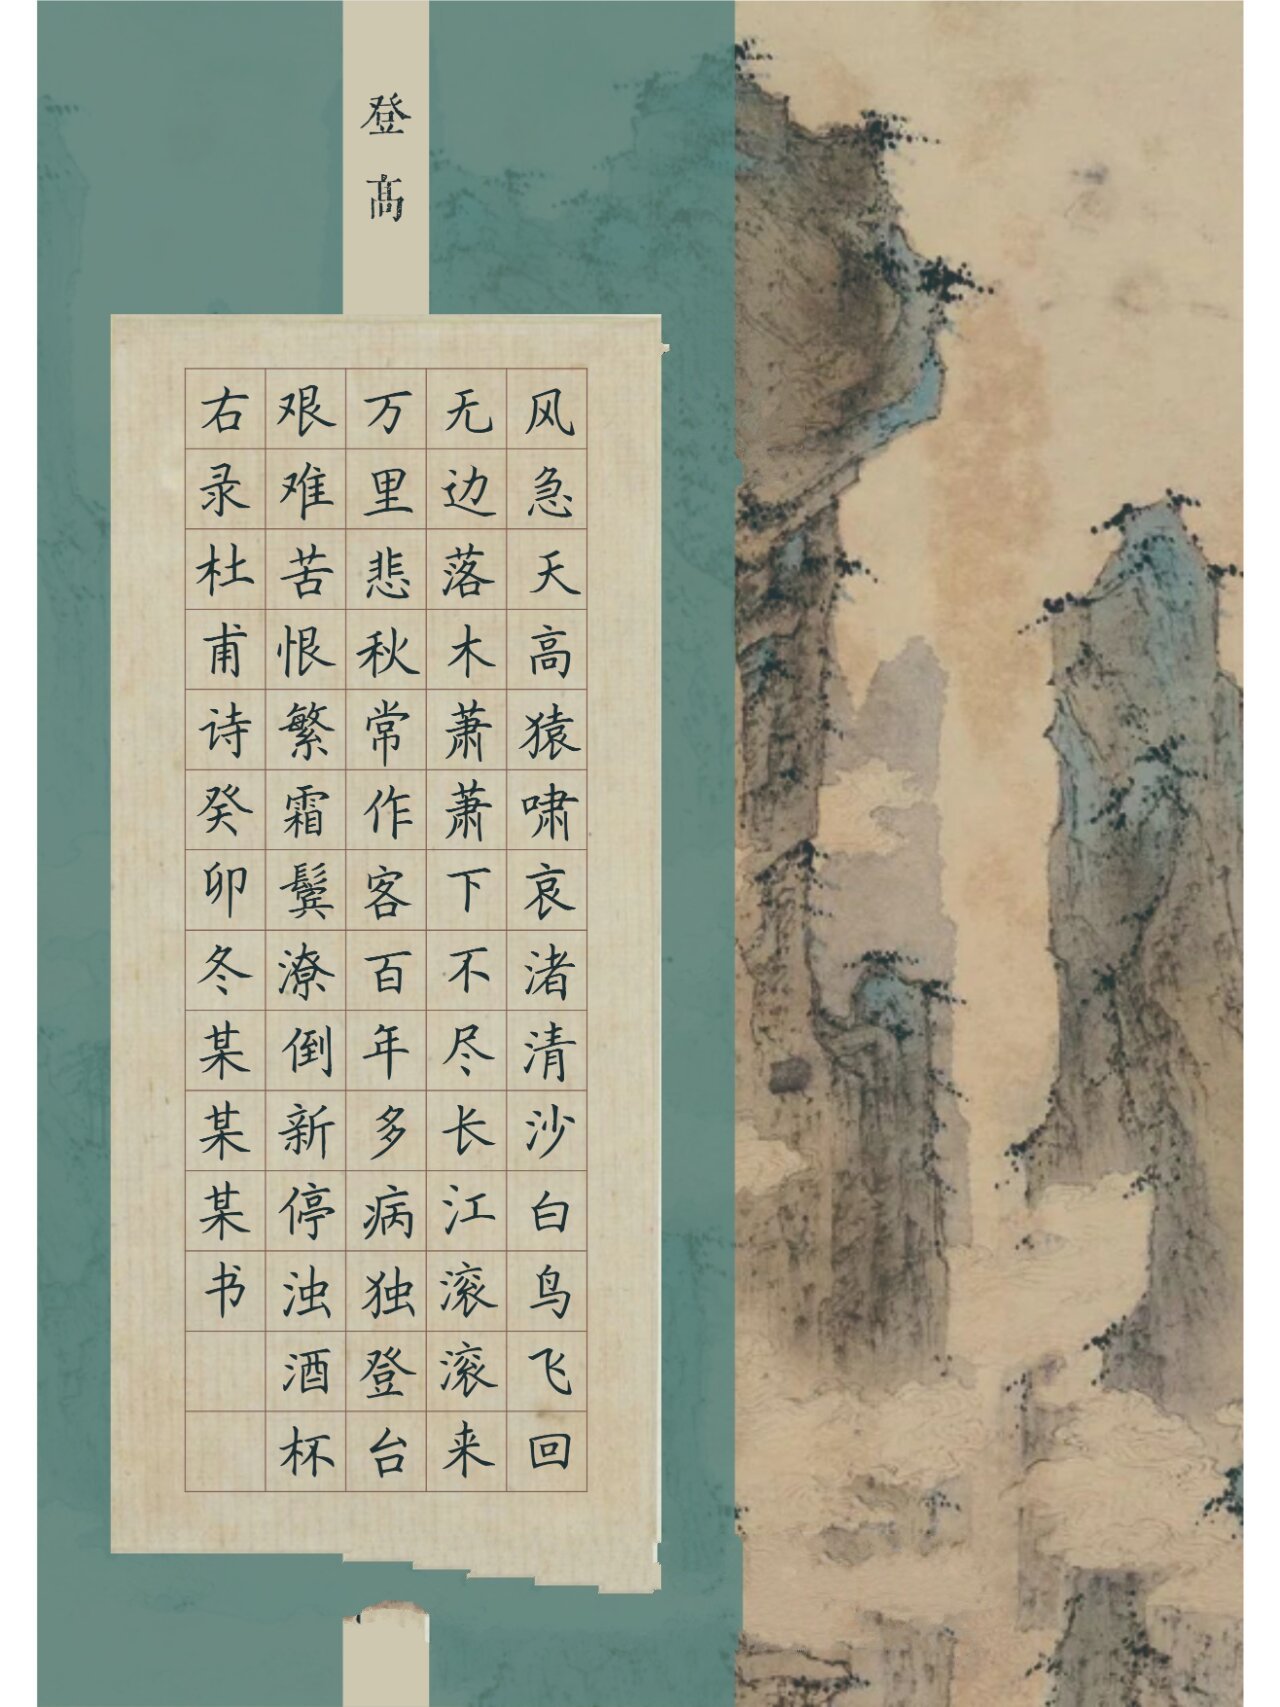 登高
风急天高猿啸哀渚清沙白鸟飞回
无边落木萧萧下不尽长江滚滚来
万里悲秋常作客百年多病独登台
艰难苦恨繁霜鬓潦倒新停浊酒杯
右录杜甫诗癸卯冬某某某书